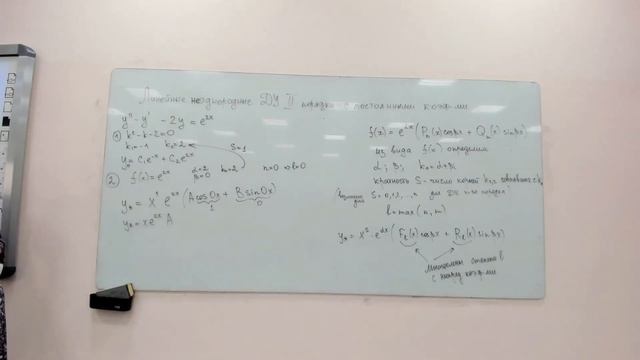 Линейные неоднородные ДУ II порядка с постоянными коэфф.
y'' - y' - 2y = e^{2x}
1) k² - k - 2 = 0
k₁ = -1 k₂ = 2 S=1
C₁e^{-x} + C₂e^{2x}
2. f(x) = e^{2x} α=2 β=0 k₀=2 n=0 => l=0
yₙ = x¹ e^{2x} (A cos 0x + B sin 0x)
1 0
yₙ = x e^{2x} A
f(x) = e^{αx} (Pₙ(x) cos βx + Qₘ(x) sin βx)
из вида f(x) определим
α; β; k₀ = α + βi
кратность S - число корней k₁,₂ совпавших с k₀
S = 0, 1, 2, ..., n для ДУ n-го порядка
l = max(n, m)
yₙ = x^S · e^{αx} (F_l(x) cos βx + R_l(x) sin βx)
многочлены степени l
с коэфф.